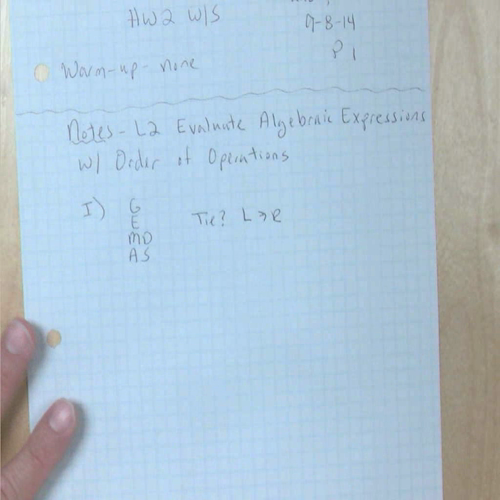 HW2 W/S
9-8-14
P 1
Warm-up - none
Notes - L2 Evaluate Algebraic Expressions
w/ Order of Operations
I) G
E
MD
AS
Tie? L → R